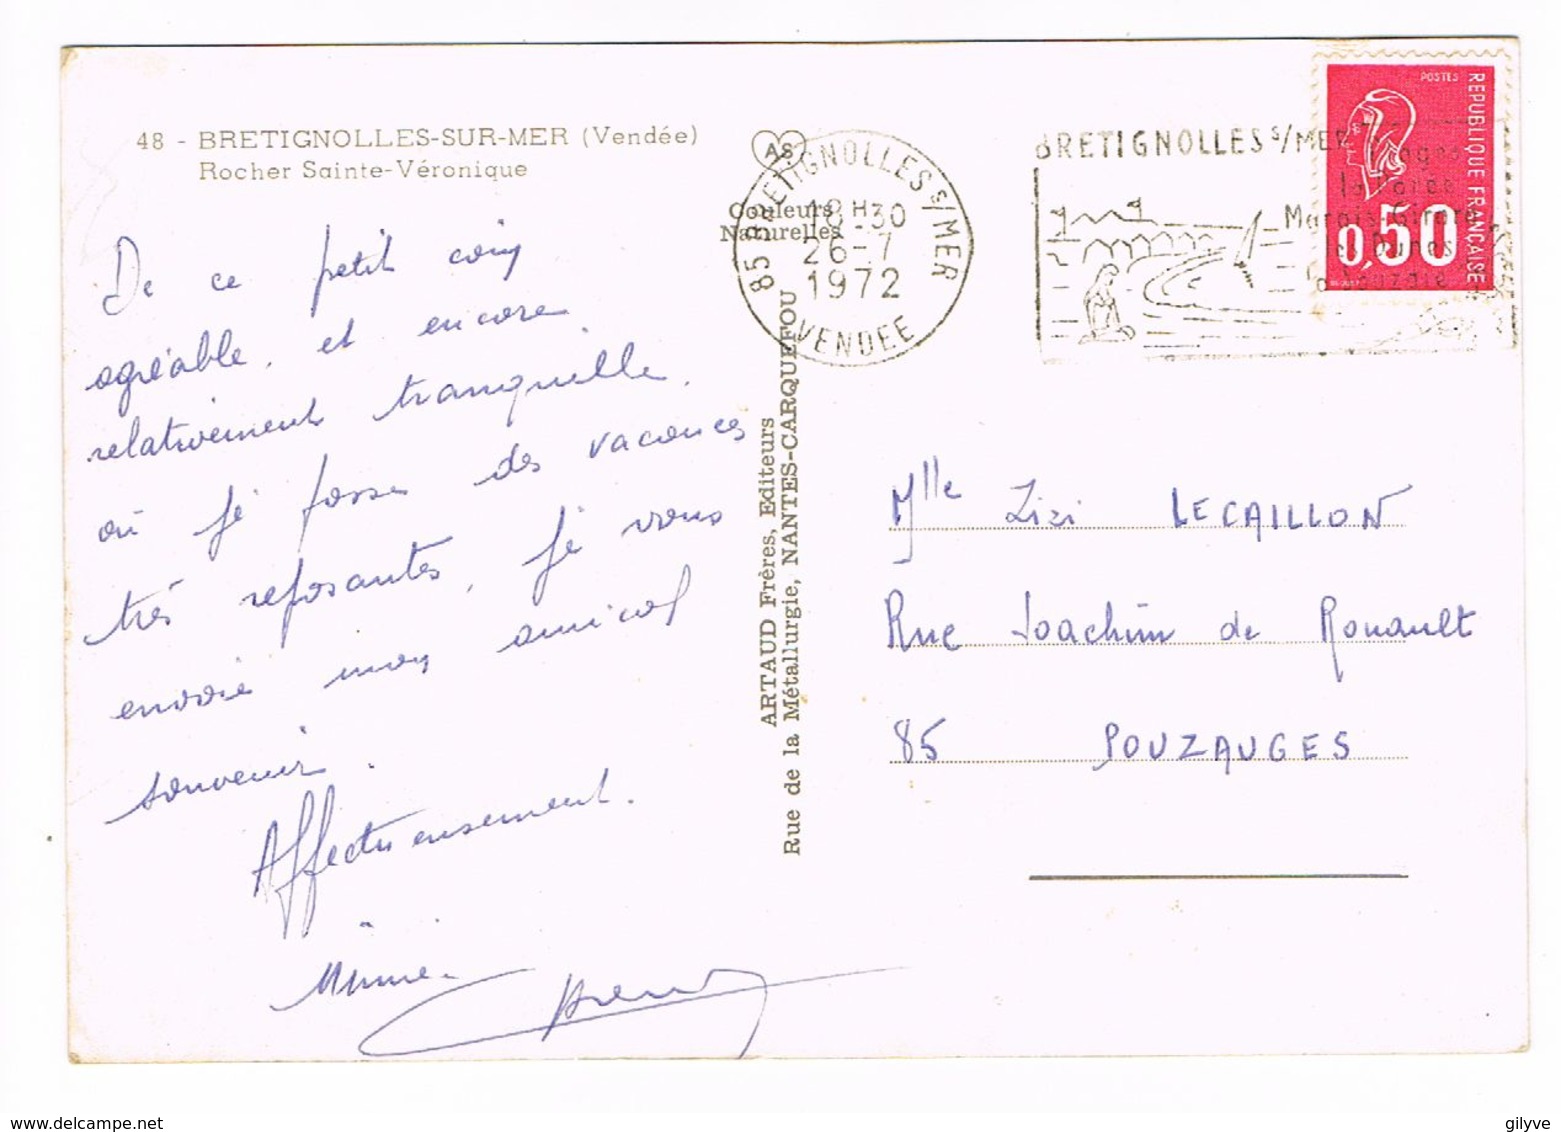 48 - BRETIGNOLLES-SUR-MER (Vendée)
Rocher Sainte-Véronique
AS
Couleurs
Naturelles
De ce petit coin
agréable, et encore
relativement tranquille,
où je passe des vacances
très reposantes, je vous
envoie mon amical
souvenir.
Affectueusement.
Mimie
ARTAUD Frères, Editeurs
Rue de la Métallurgie, NANTES-CARQUEFOU
85 BRETIGNOLLES S/MER
18H30
26-7
1972
VENDEE
BRETIGNOLLES S/MER
la Parée
Marais Girard
les Dunes
POSTES
REPUBLIQUE FRANÇAISE
0,50
Mlle Zizi LECAILLON
Rue Joachim de Rouault
85 POUZAUGES
delcampe.net
gilyve